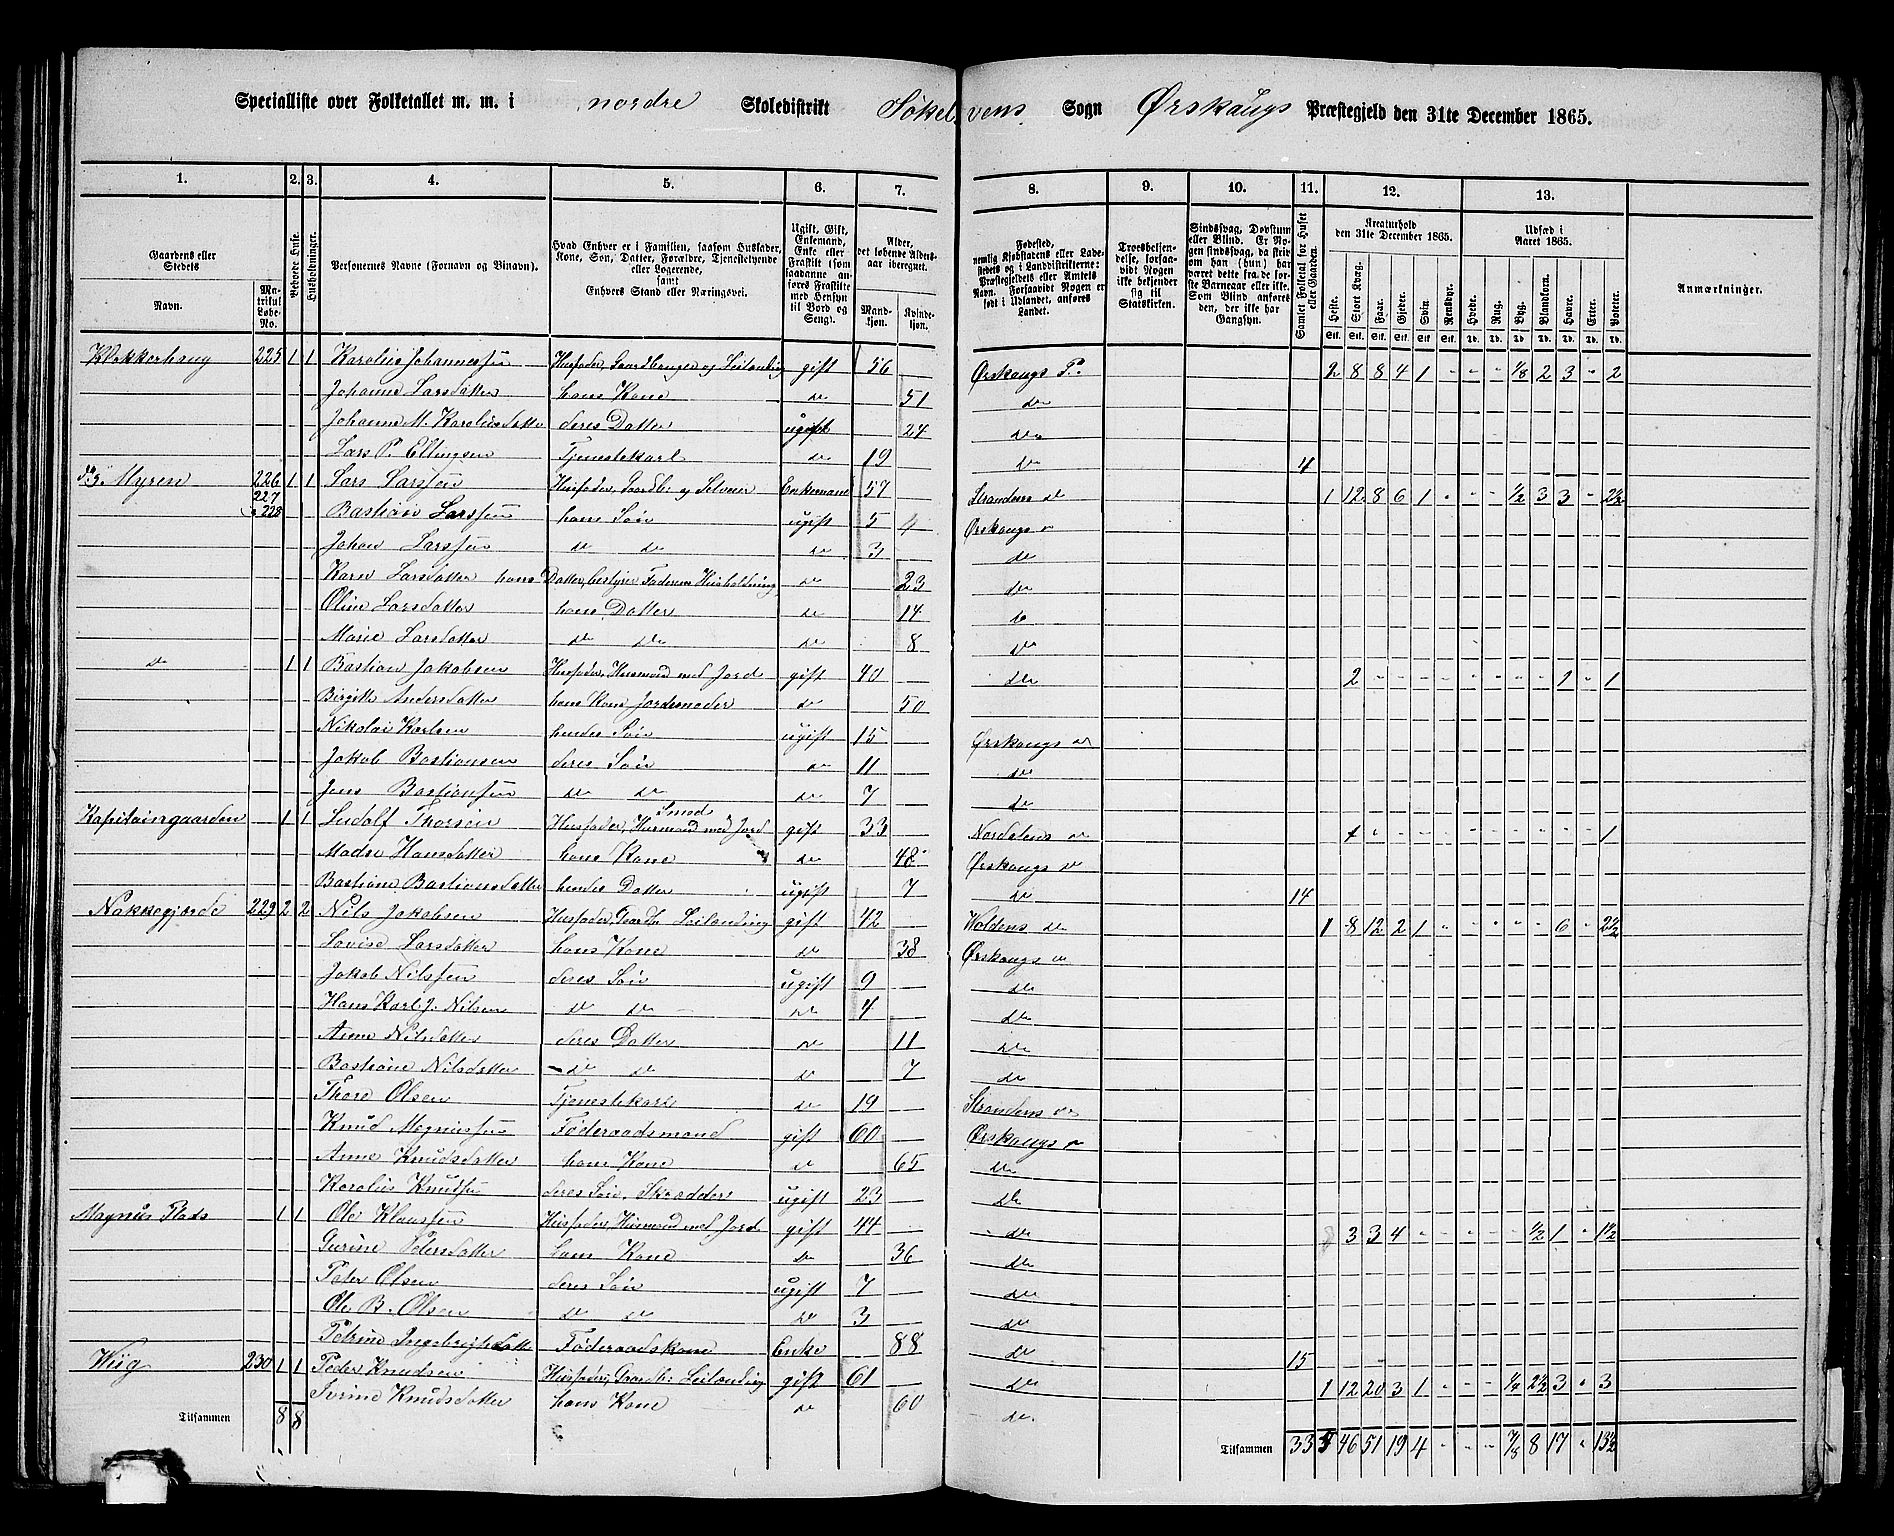 Specialliste over Folketallet m. m. i nordre Skoledistrikt Søkelvens Sogn Ørskougs Præstegjeld den 31te December 1865.
1. 2. 3. 4. 5. 6. 7. 8. 9. 10. 11. 12. 13.
Gaardens eller Stedets
Navn. Matrikul Løbe-No.
Beboede Huse.
Husholdninger.
Personernes Navne (Fornavn og Binavn).
Hvad Enhver er i Familien, saasom Husfader, Kone, Søn, Datter, Forældre, Tjenestetyende eller Logerende, samt Enhvers Stand eller Næringsvei.
Ugift, Gift, Enkemand, Enke eller Fraskilt (som saadanne anføres Fraskilte med Hensyn til Bord og Seng).
Alder, det løbende Aldersaar iberegnet.
Mandkjøn. Kvindekjøn.
Fødested, nemlig Kjøbstadens eller Ladestedets og i Landdistrikterne: Præstegjeldets eller Amtets Navn. Forsaavidt Nogen er født i Udlandet, anføres Landet.
Troesbekjendelse, forsaavidt Nogen ikke bekjender sig til Statskirken.
Sindssvag, Døvstum eller Blind. Er Nogen sindssvag, da skrives om han (hun) har været dette fra de første Barneaar eller ikke. Som Blind anføres den, der ikke har Gangsyn.
Samlet Folketal for Huset eller Gaarden.
Kreaturhold den 31te December 1865.
Heste. Stort Kvæg. Faar. Gjeder. Svin. Rensdyr.
Udsæd i Aaret 1865.
Hvede. Rug. Byg. Blandkorn. Havre. Erter. Poteter.
Anmærkninger.
Klokkerhaug 225 1 1 Karolus Johannessen Husfader, Gaardbruger og Leilænding gift 56 Ørskougs P. 2 8 8 4 1 " " " 1/8 2 3 " 2
Johanne Larsdatter hans Kone do 51 do
Johanne M. Karolusdatter deres Datter ugift 24 do
Lars P. Ellingsen Tjenestekarl do 19 do 4
Myren 226 227 228 1 1 Lars Larssen Husfader, Gaardb: og Selveier Enkemand 57 Strandens do 1 12 8 6 1 " " " 1/2 3 3 " 2 1/2
Bastian Larssen hans Søn ugift 5 Ørskougs do
Johan Larssen do do do 3 do
Karn Larsdatter hans Datter, bestyrer Faderens Husholdning do 23 do
Oline Larsdatter hans Datter do 14
Marie Larsdatter do do do 8 do
do 1 1 Bastian Jakobsen Husfader, Husmand med Jord gift 40 do 2 " " " " " " " " 1 " 1
Birgitte Andersdatter hans Kone Jordemoder do 50
Nikolai Karlsen hendes Søn ugift 15 Ørskougs do
Jakob Bastiansen deres Søn do 11 do
Jens Bastiansen do do do 7 do
Kapitaingaarden 1 1 Ludolf Thorsen Husfader, Husmand med Jord Smed gift 33 Nordalens do 1 1
Madse Hansdatter hans Kone do 48 Ørskougs do
Bastiane Bastiansdatter hendes Datter ugift 7 do 14
Nakkegjerde 229 2 2 Nils Jakobsen Husfader, Gaardbr Leilænding gift 42 Woldens do 1 8 12 2 1 " " " " " 6 " 2 1/2
Lovise Larsdatter hans Kone do 38 Ørskougs do
Jakob Nilssen deres Søn ugift 9 do
Hans Karl J. Nilsen do do do 4 do
Anne Nilsdatter deres Datter do 11 do
Bastiane Nilsdatter do do do 7 do
Thore Olsen Tjenestekarl do 19 Strandens do
Knud Magnussen Føderaadsmand gift 60 Ørskougs do
Anne Knudsdatter hans Kone do 65 do
Karolus Knutsen deres Søn, Skrædder ugift 23 do
Magnus Plads 1 1 Ole Klaussen Husfader, Husmand med Jord gift 44 do 3 3 4 " " " " " 1/2 1 " 1 1/2
Gurine Pedersdatter hans Kone do 36 do
Peter Olsen deres Søn ugift 7 do
Ole B. Olsen do do do 3 do
Petrine Ingebrigtsdatter Føderaadskone Enke 88 do 15
Wiig 230 1 1 Peder Knudsen Husfader, Gaardb: Leilænding gift 61 do 1 12 20 3 1 " " " 1/4 2 1/2 3 " 3
Ivrine Knudsdatter hans Kone do 60 do
Tilsammen 8 8 Tilsammen 33 5 46 51 19 4 " " " 7/8 8 17 " 13 1/2